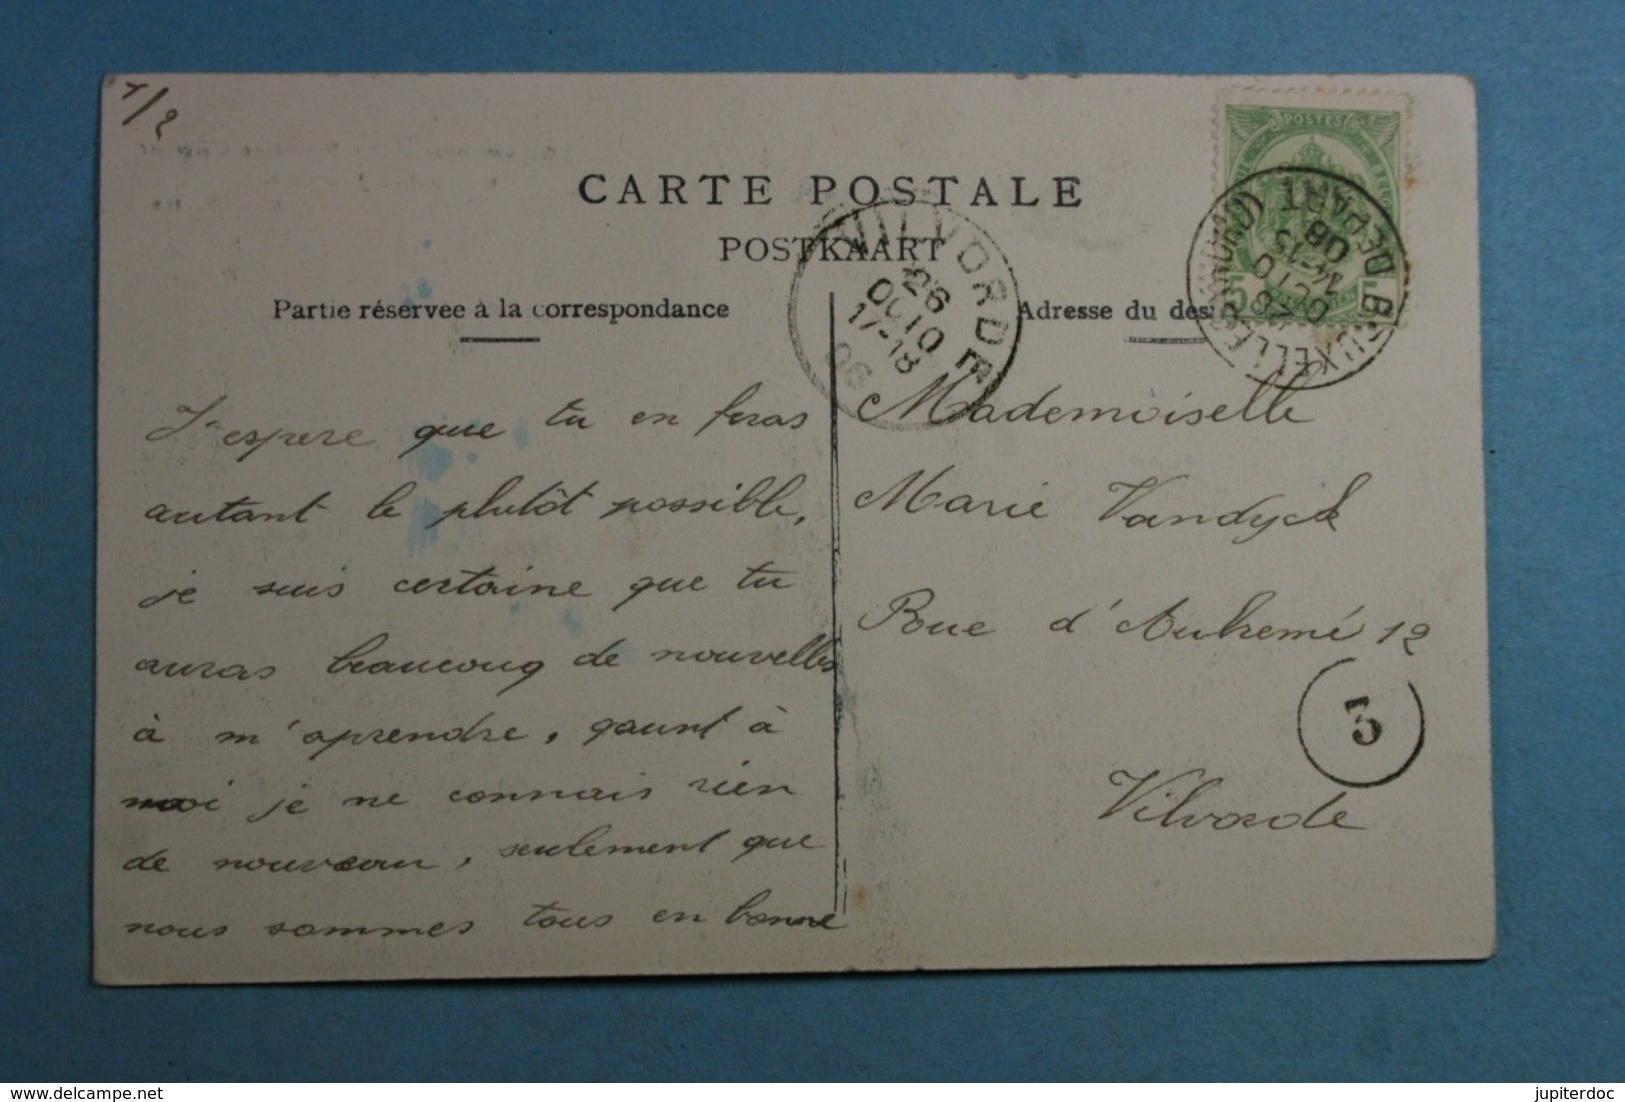 1/2
CARTE POSTALE
POSTKAART
Partie réservee à la correspondance
Adresse du des
POSTES
5
5
BRUXELLES (NORD) DEPART
OCT 10
14-15
06
VILVORDE
26
OCT 10
17-18
06
J'espere que tu en feras
autant le plutôt possible,
je suis certaine que tu
auras beaucoup de nouvelles
à m'aprendre, quant à
moi je ne connais rien
de nouveau, seulement que
nous sommes tous en bonne
Mademoiselle
Marie Vandyck
Rue d'
12
5
Vilvorde
delcampe.net
jupiterdoc